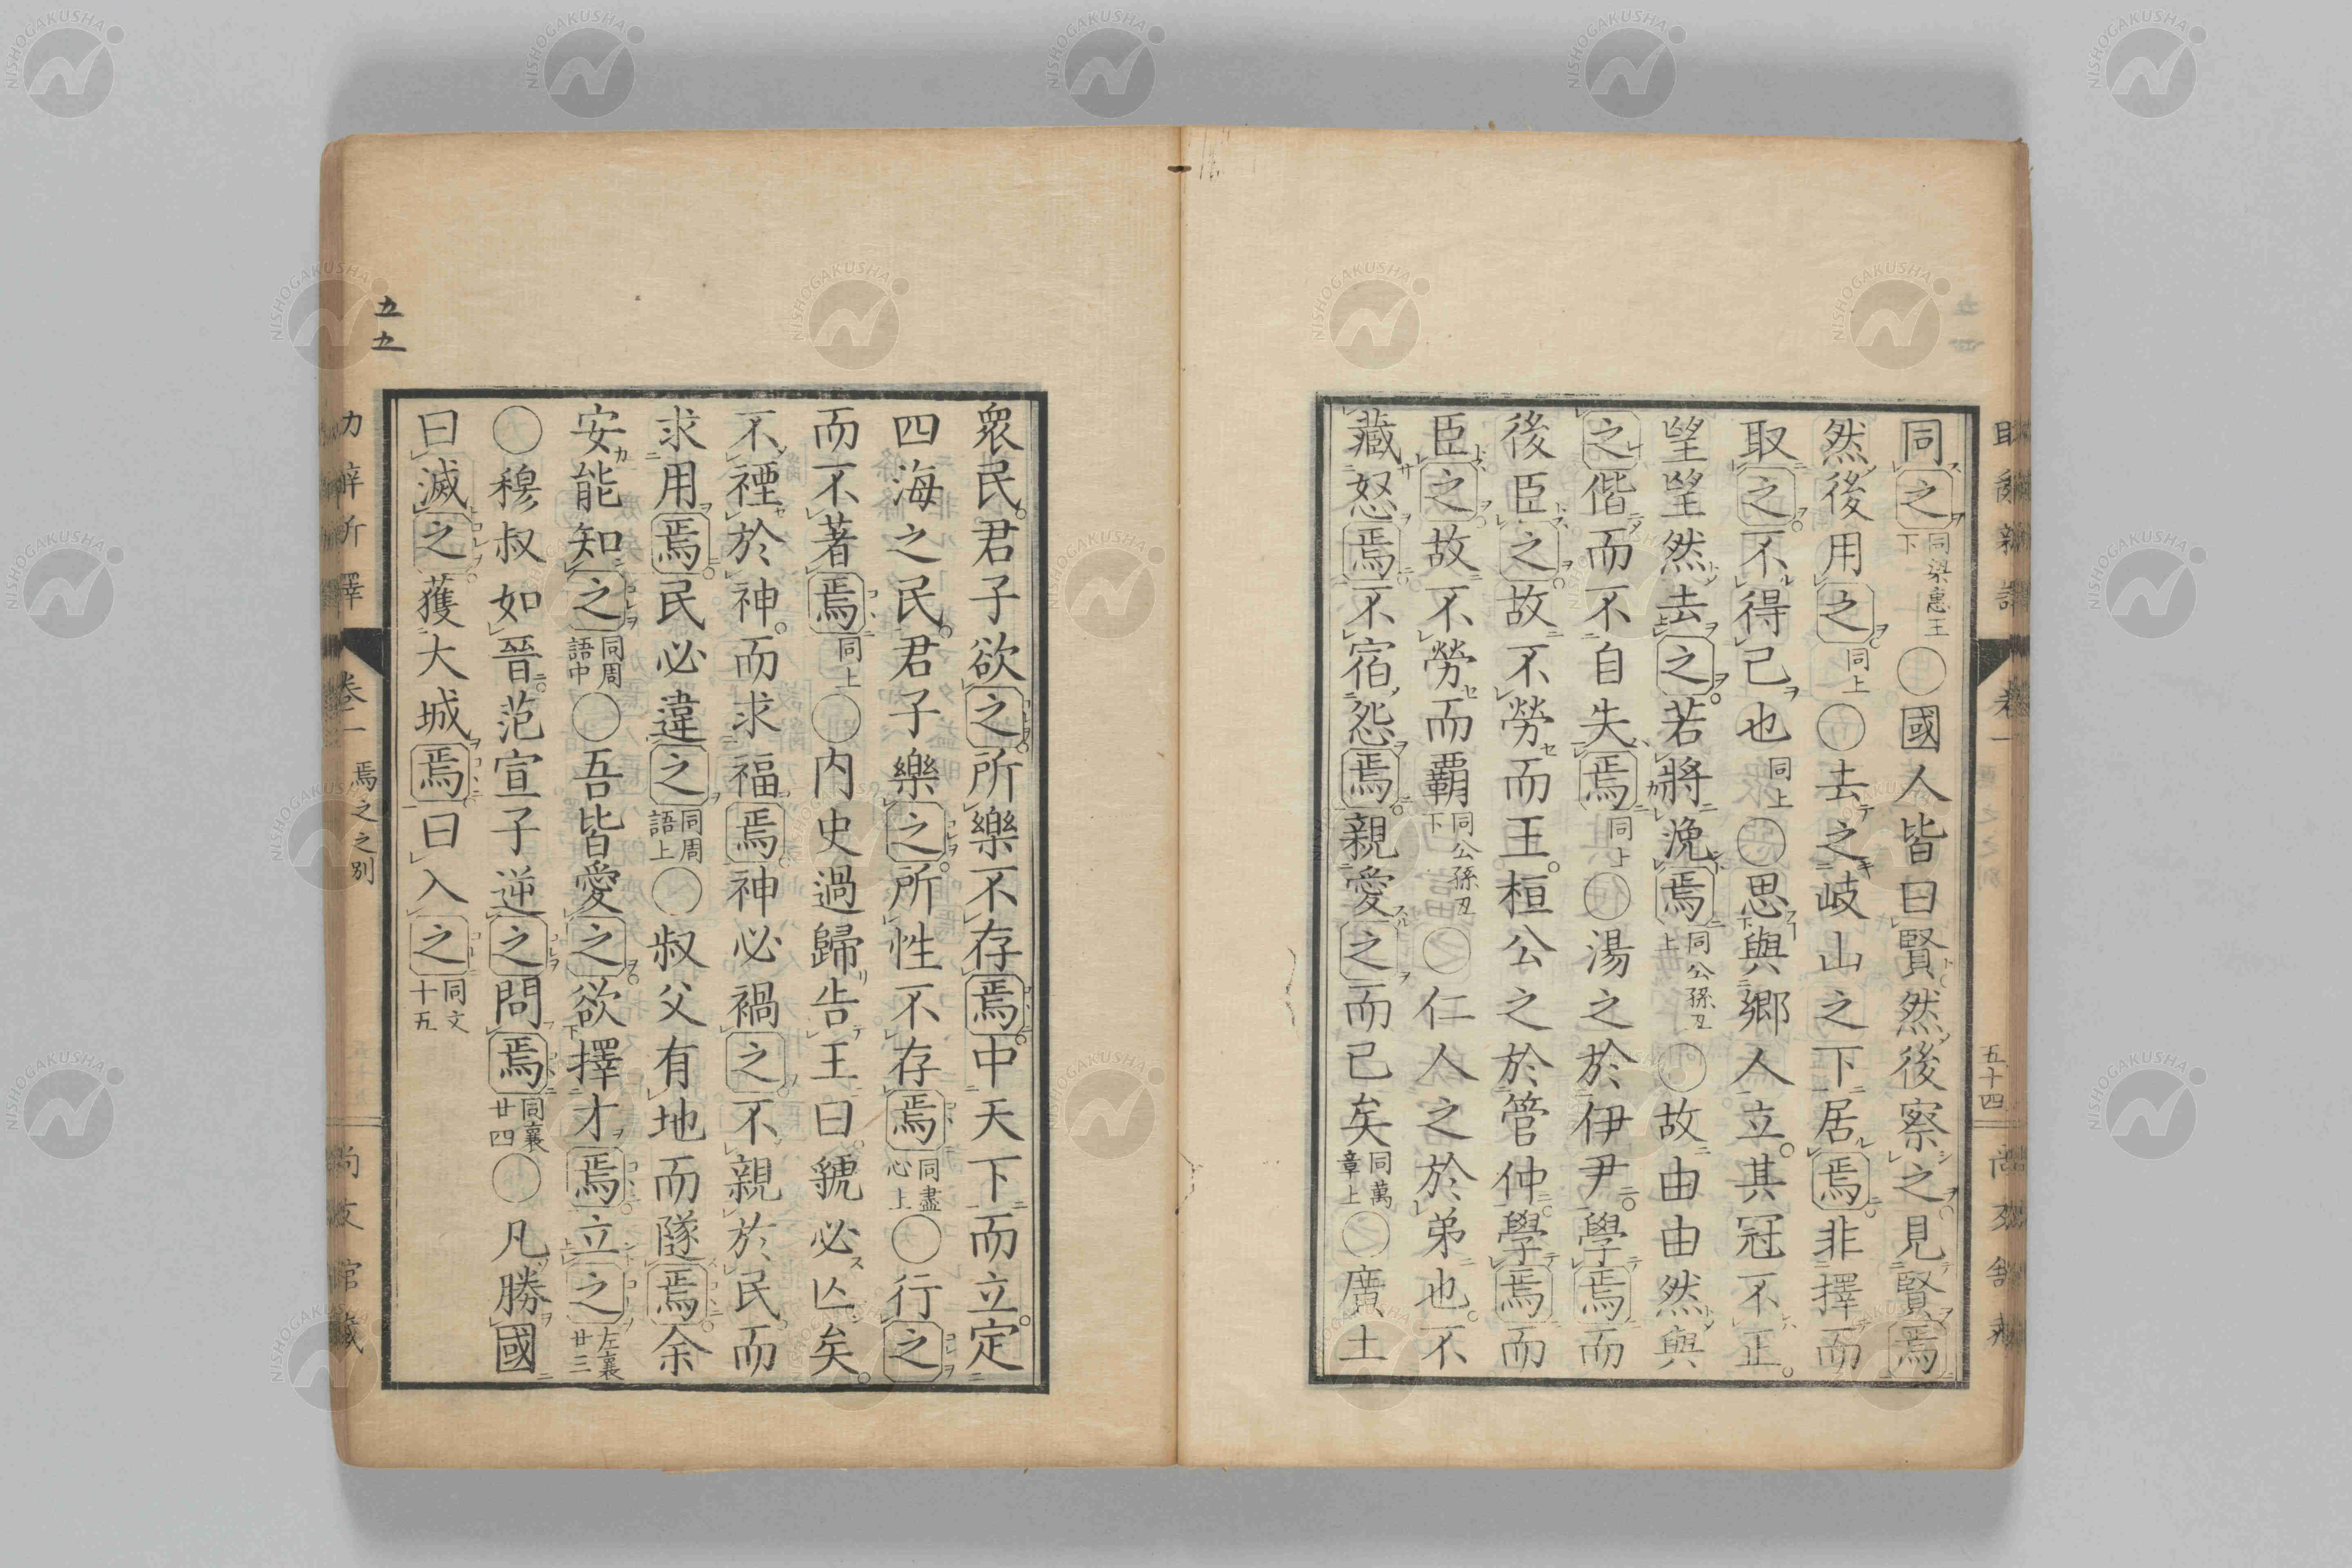 同之同梁惠王下○國人皆曰賢然後察之見賢焉
然後用之同上○去之岐山之下居焉非擇而
取之不得已也同上○思與鄉人立其冠不正
望望然去之若將浼焉同公孫丑上○故由由然與
之偕而不自失焉同上○湯之於伊尹學焉而
後臣之故不勞而王桓公之於管仲學焉而
臣之故不勞而覇同公孫丑下○仁人之於弟也不
藏怒焉不宿怨焉親愛之而已矣同萬章上○廣土
衆民君子欲之所樂不存焉中天下而立定
四海之民君子樂之所性不存焉同盡心上○行之
而不著焉同上○内史過歸告王曰虢必亡矣
不禋於神而求福焉神必禍之不親於民而
求用焉民必違之同周語上○叔父有地而隧焉余
安能知之同周語中○吾皆愛之欲擇才焉立之左襄廿三
○穆叔如晉范宣子逆之問焉同襄廿四○凡勝國
曰滅之獲大城焉曰入之同文十五
卷一 焉之之別
五十四
五五
NISHOGAKUSHA